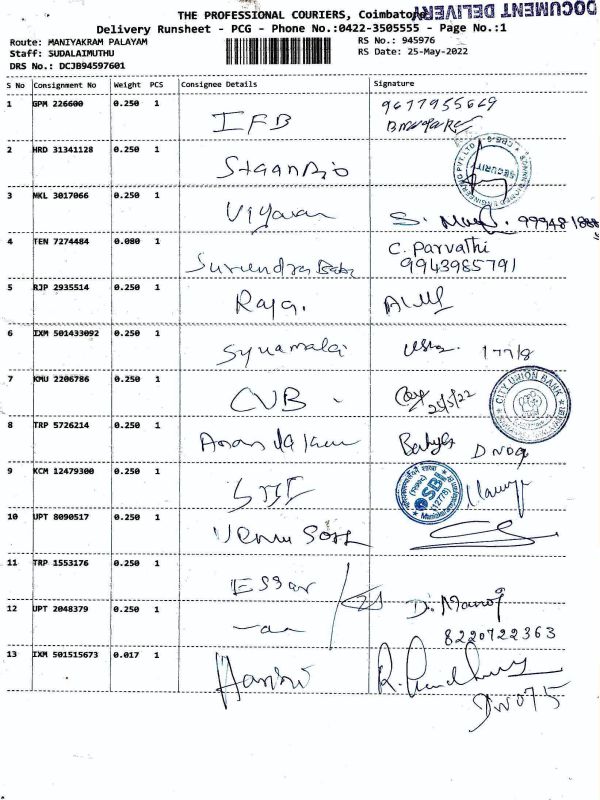 THE PROFESSIONAL COURIERS, Coimbatore
DOCUMENT DELIVERY
Delivery Runsheet - PCG - Phone No.:0422-3505555 - Page No.:1
Route: MANIYAKRAM PALAYAM
RS No.: 945976
Staff: SUDALAIMUTHU
RS Date: 25-May-2022
DRS No.: DCJB94597601
S No Consignment No Weight PCS Consignee Details Signature
1 GPM 226600 0.250 1 IFB 9677955669
2 HRD 31341128 0.250 1
SECURITY
3 MKL 3017066 0.250 1 S.
4 TEN 7274484 0.080 1 Surendra Babu C. Parvathi
9943985791
5 RJP 2935514 0.250 1 Raja.
6 IXM 501433092 0.250 1 Syuamalai Usha. 177/8
7 KMU 2206786 0.250 1 CUB 25/5/22
CITY UNION BANK
8 TRP 5726214 0.250 1
9 KCM 12479300 0.250 1 SBI
SBI
10 UPT 8090517 0.250 1
11 TRP 1553176 0.250 1 Essar
12 UPT 2048379 0.250 1 D. Manoj
8220722363
13 IXM 501515673 0.017 1 Harini